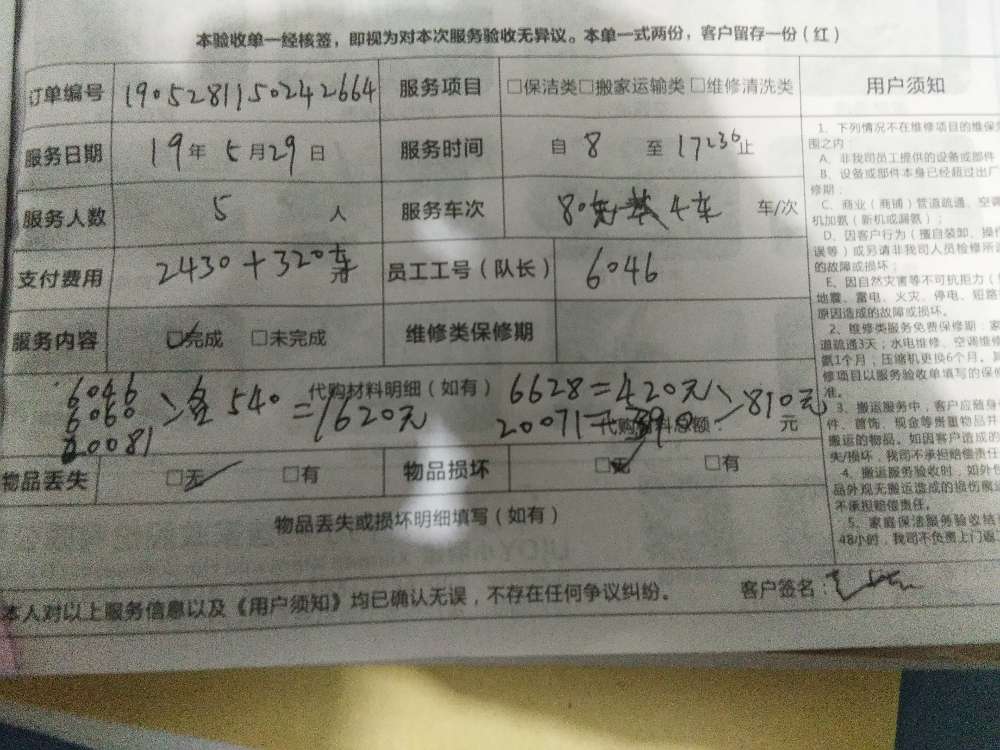 本验收单一经核签，即视为对本次服务验收无异议。本单一式两份，客户留存一份（红）
订单编号 190528115024 2664 服务项目 □保洁类□搬家运输类□维修清洗类
服务日期 19年5月29日 服务时间 自 8 至 17:30止
服务人数 5 人 服务车次 4车 车/次
支付费用 2430+320车 员工工号（队长） 6046
服务内容 ☑完成 □未完成 维修类保修期
代购材料明细（如有）
6046
6060 >各540=1620元
20081
6628=420元
20071=390 >810元
代购材料总额： 元
物品丢失 ☑无 □有 物品损坏 ☑无 □有
物品丢失或损坏明细填写（如有）
本人对以上服务信息以及《用户须知》均已确认无误，不存在任何争议纠纷。 客户签名：
用户须知
1、下列情况不在维修项目的维保
围之内：
A、非我司员工提供的设备或部件
B、设备或部件本身已经超过出厂
修期；
C、商业（商铺）管道疏通、空调
机加氨（新机或漏氨）；
D、因客户行为（擅自装卸、操作
误等）或另请非我司人员检修所
的故障或损坏；
E、因自然灾害等不可抗拒力（
地震、雷电、火灾、停电、短路
原因造成的故障或损坏。
2、维修类服务免费保修期：家
道疏通3天；水电维修、空调维修
氨1个月；压缩机更换6个月。
修项目以服务验收单填写的保修
准。
3、搬运服务中，客户应随身
件、首饰、现金等贵重物品并
搬运的物品。如因客户造成的
失/损坏，我司不承担赔偿责任
4、搬运服务验收时，如外包
品外观无搬运造成的损伤
不承担赔偿责任。
5、家庭保洁服务验收结
48小时，我司不负责上门返